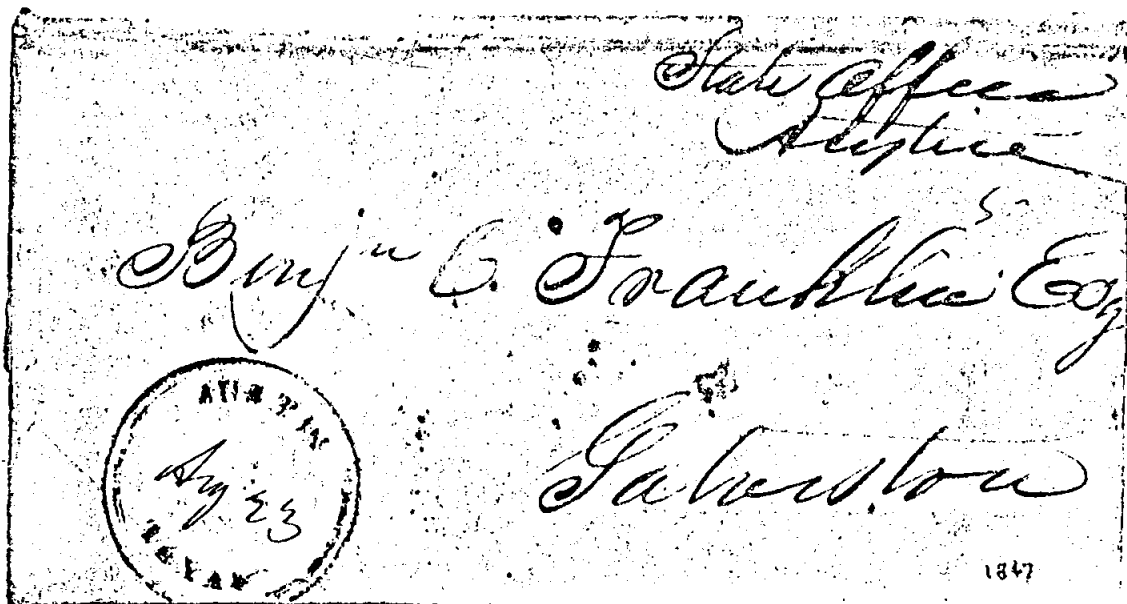 State Office
Austin
5
Benjn C. Franklin Esq
Galveston
AUSTIN
Aug 23
TEXAS
1847